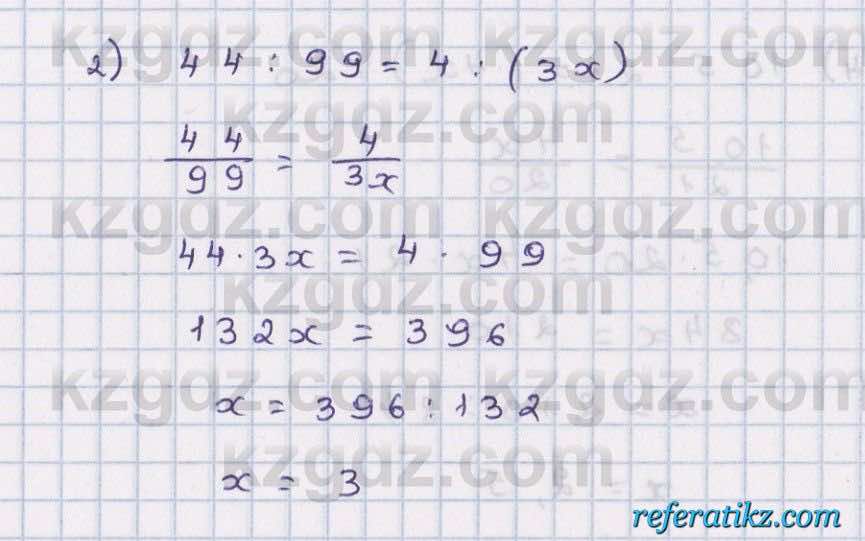 2) 44 : 99 = 4 : (3x)
44/99 = 4/3x
44 · 3x = 4 · 99
132x = 396
x = 396 : 132
x = 3
kzgdz.com
kzgdz.com
kzgdz.com
kzgdz.com
kzgdz.com
kzgdz.com
kzgdz.com
referatikz.com